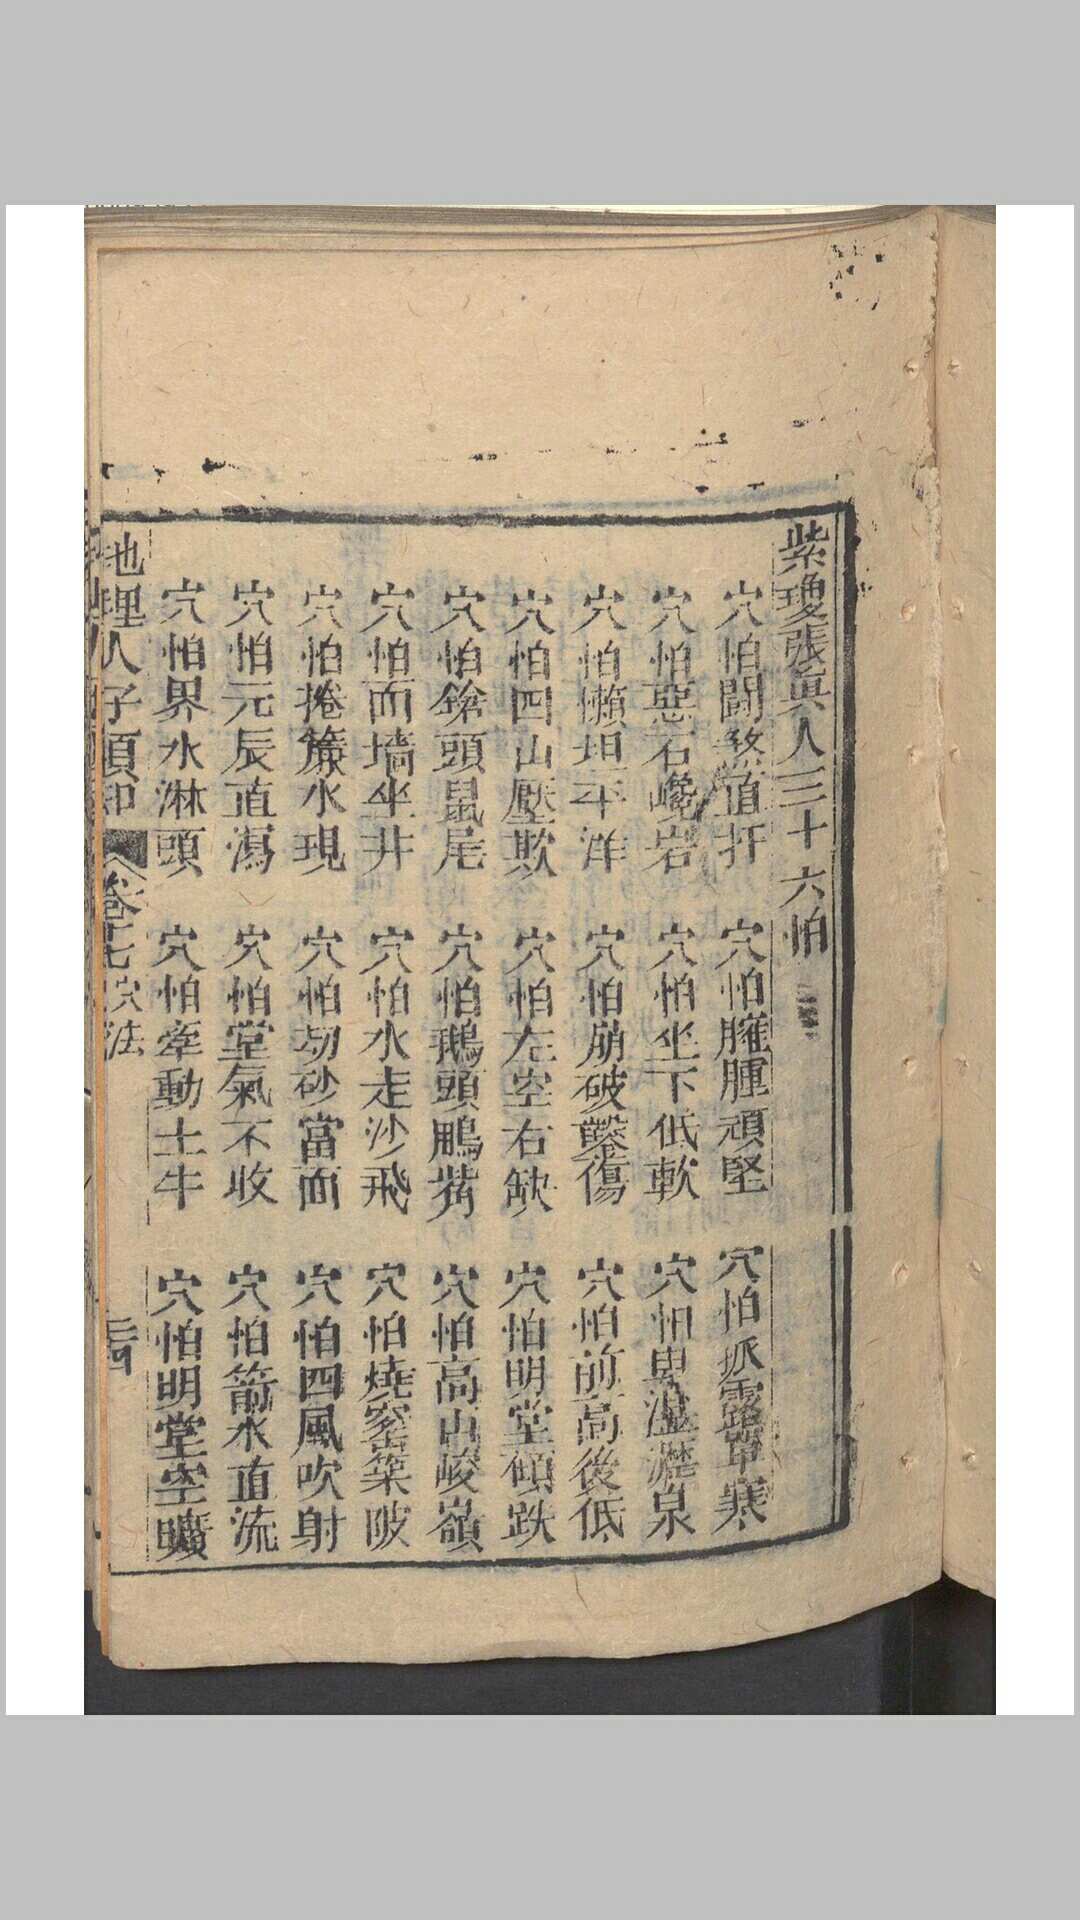 紫瓊張眞人三十六怕
穴怕鬭煞直扦 穴怕臃腫頑堅 穴怕孤露單寒
穴怕惡石巉岩 穴怕坐下低軟 穴怕卑濕瀝泉
穴怕懶坦平洋 穴怕崩破鑿傷 穴怕前高後低
穴怕四山壓欺 穴怕左空右缺 穴怕明堂傾跌
穴怕鎗頭鼠尾 穴怕鵝頭鵰觜 穴怕高山峻嶺
穴怕面墻坐井 穴怕水走沙飛 穴怕燒窰築陂
穴怕捲簾水現 穴怕刼砂當面 穴怕四風吹射
穴怕元辰直瀉 穴怕堂氣不收 穴怕箭水直流
穴怕界水淋頭 穴怕牽動土牛 穴怕明堂空曠
地理人子須知 卷十七 穴法